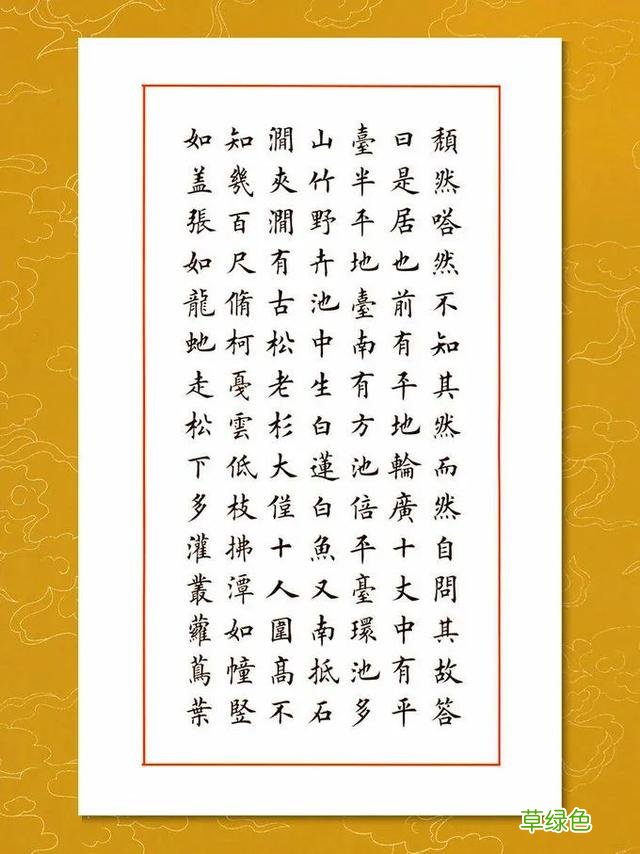 頽然嗒然不知其然而然自問其故答
曰是居也前有平地輪廣十丈中有平
臺半平地臺南有方池倍平臺環池多
山竹野卉池中生白蓮白魚又南抵石
澗夾澗有古松老杉大僅十人圍髙不
知幾百尺脩柯戛雲低枝拂潭如幢竪
如盖張如龍虵走松下多灌叢蘿蔦葉
草绿色